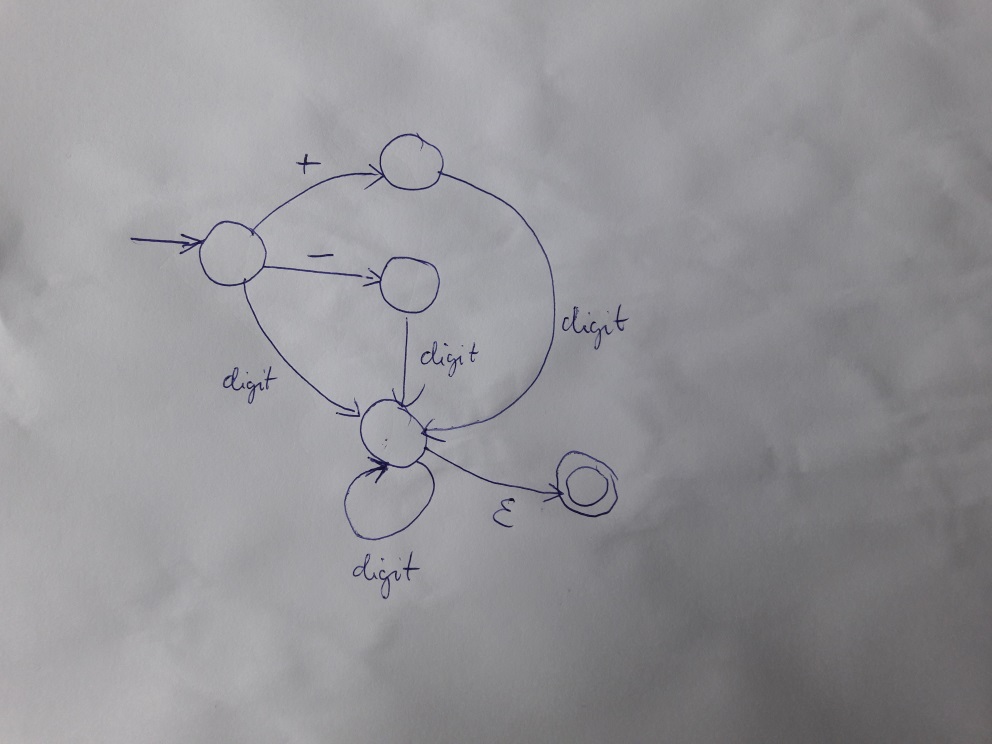 +
−
digit
digit
digit
ε
digit